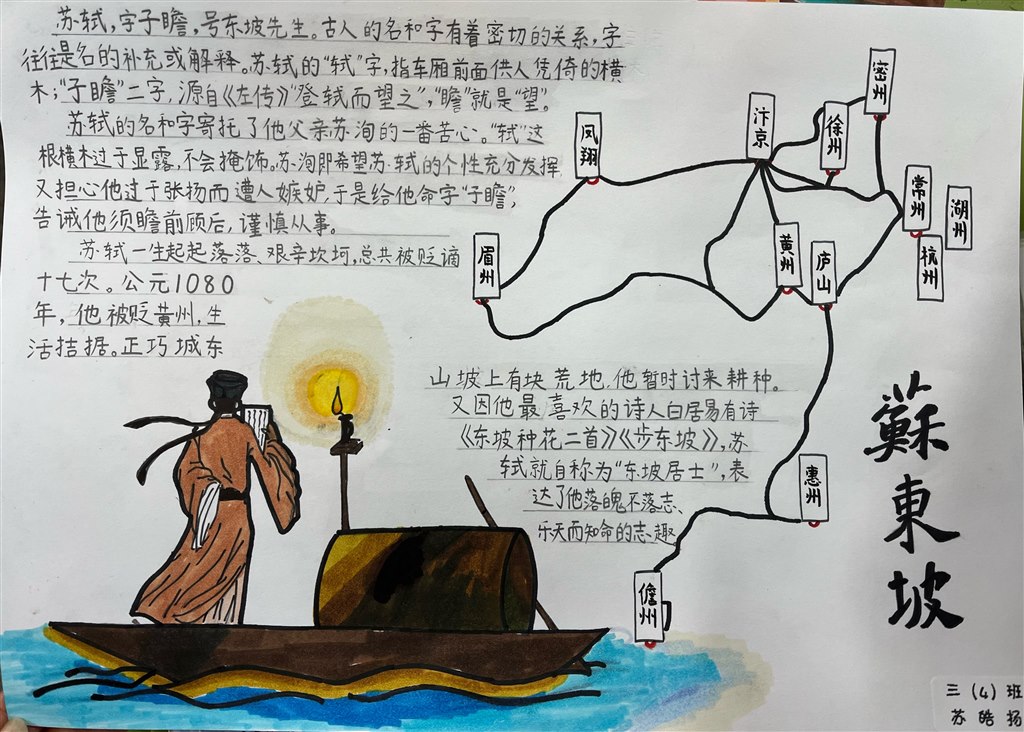 苏轼，字子瞻，号东坡先生。古人的名和字有着密切的关系，字
往往是名的补充或解释。苏轼的“轼”字，指车厢前面供人凭倚的横
木；“子瞻”二字，源自《左传》“登轼而望之”，“瞻”就是“望”。
苏轼的名和字寄托了他父亲苏洵的一番苦心。“轼”这
根横木过于显露，不会掩饰。苏洵即希望苏轼的个性充分发挥
又担心他过于张扬而遭人嫉妒，于是给他命字“子瞻”，
告诫他须瞻前顾后，谨慎从事。
苏轼一生起起落落、艰辛坎坷，总共被贬谪
十七次。公元1080
年，他被贬黄州，生
活拮据。正巧城东
山坡上有块荒地，他暂时讨来耕种。
又因他最喜欢的诗人白居易有诗
《东坡种花二首》《步东坡》，苏
轼就自称为“东坡居士”，表
达了他落魄不落志、
乐天而知命的志趣
密州
汴京
徐州
凤翔
常州
湖州
眉州
黄州
庐山
杭州
惠州
儋州
蘇東坡
三（4）班
苏皓扬